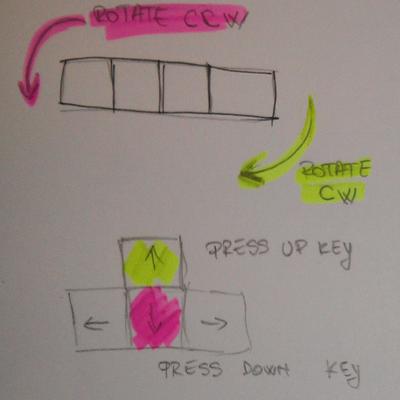 ROTATE CCW
ROTATE
CW
PRESS UP KEY
PRESS DOWN KEY